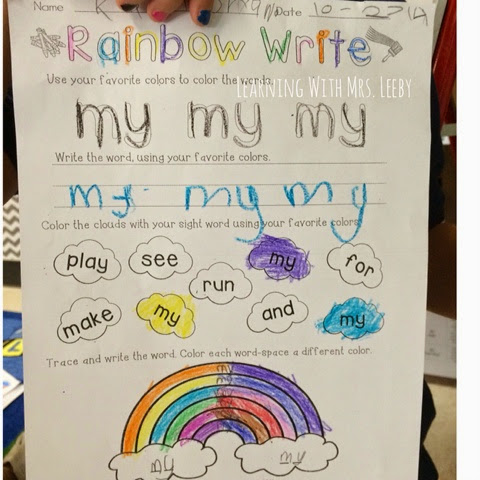 Name K Date 10-27-14
Rainbow Write
Use your favorite colors to color the words.
Learning With Mrs. Leeby
my my my
Write the word, using your favorite colors.
my my my
Color the clouds with your sight word using your favorite colors.
play see my for
run
make my and my
Trace and write the word. Color each word-space a different color.
my my